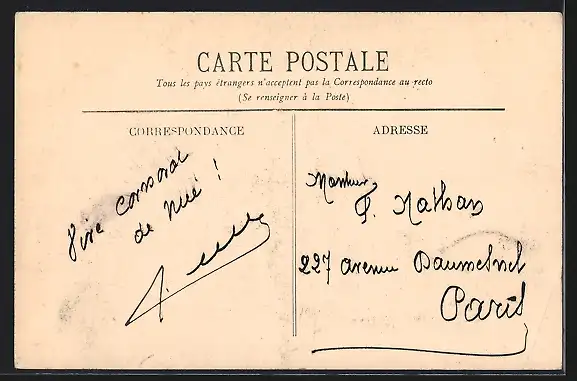 CARTE POSTALE
Tous les pays étrangers n'acceptent pas la Correspondance au recto
(Se renseigner à la Poste)
CORRESPONDANCE
ADRESSE
Vive
de
!
Monsieur
F. Nathan
227 avenue Daumesnil
Paris